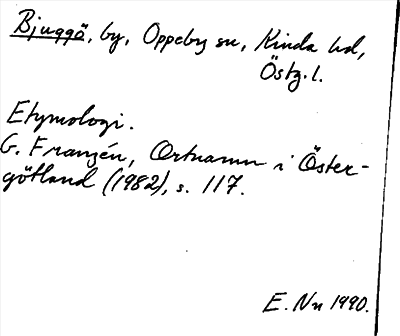 Bjuggö, by, Oppeby sn, Kinda hd,
Östg. l.
Etymologi.
G. Franzén, Ortnamn i Öster-
götland (1982), s. 117.
E. Nn 1990.